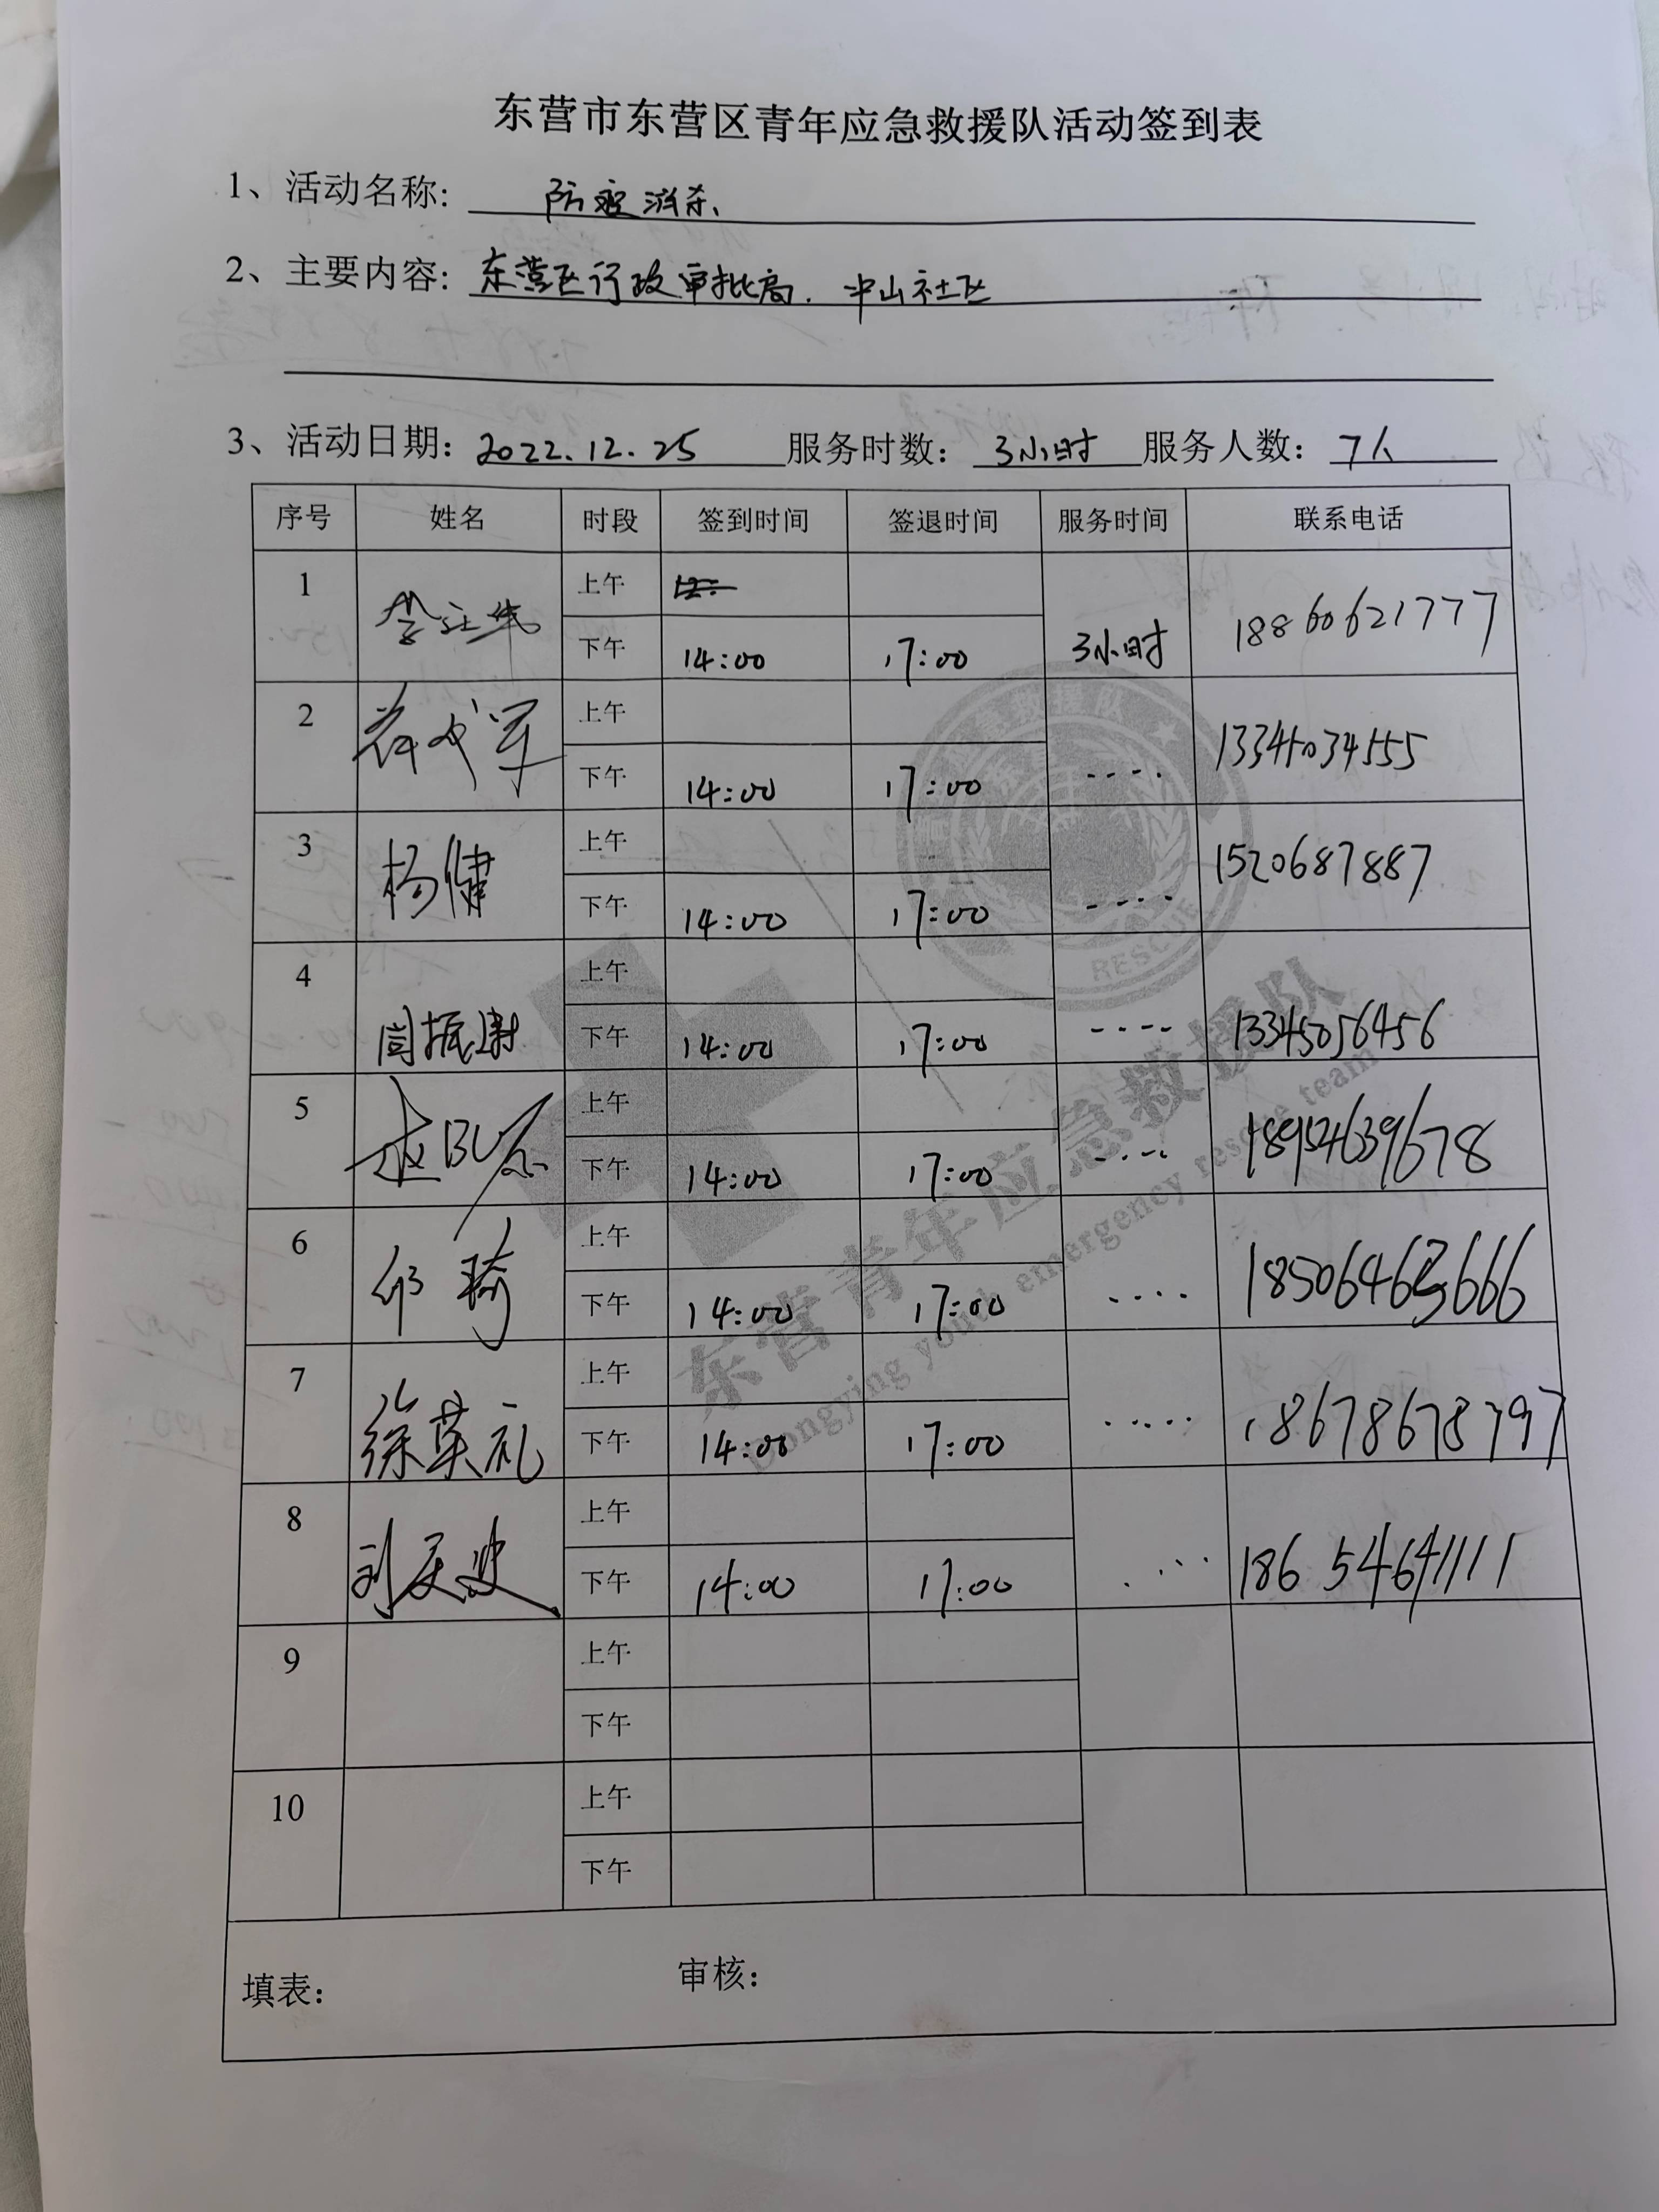 东营市东营区青年应急救援队活动签到表
1、活动名称: 防疫消杀
2、主要内容: 东营区行政审批局. 中山社区
3、活动日期: 2022.12.25 服务时数: 3小时 服务人数: 7人
序号 姓名 时段 签到时间 签退时间 服务时间 联系电话
1 上午
下午 14:00 17:00 3小时 18860621777
2 上午
下午 14:00 17:00 ---- 13345034555
3 杨健 上午
下午 14:00 17:00 ---- 1520687887
4 闫振康 上午
下午 14:00 17:00 ---- 13345056456
5 上午
下午 14:00 17:00 ---- 18954639678
6 邱琦 上午
下午 14:00 17:00 ---- 18506463666
7 徐英礼 上午
下午 14:00 17:00 ---- 18678678797
8 刘天波 上午
下午 14:00 17:00 ---- 18654641111
9 上午
下午
10 上午
下午
填表: 审核:
RESCUE
东营青年应急救援队
Dongying youth emergency rescue team